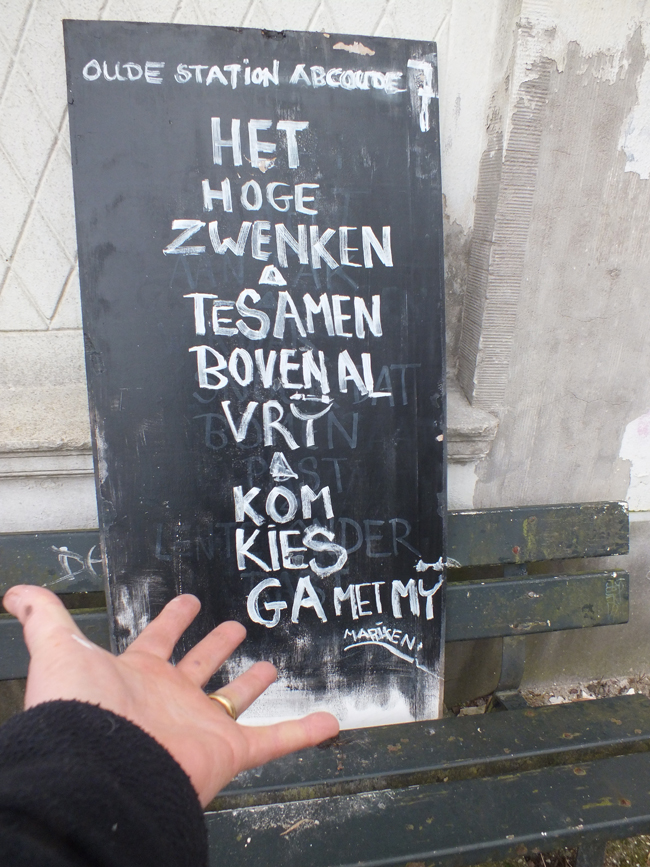 OUDE STATION ABCOUDE 7
HET
HOGE
ZWENKEN
TESAMEN
BOVEN AL
VRY
KOM
KIES
GA MET MY
MARIKEN